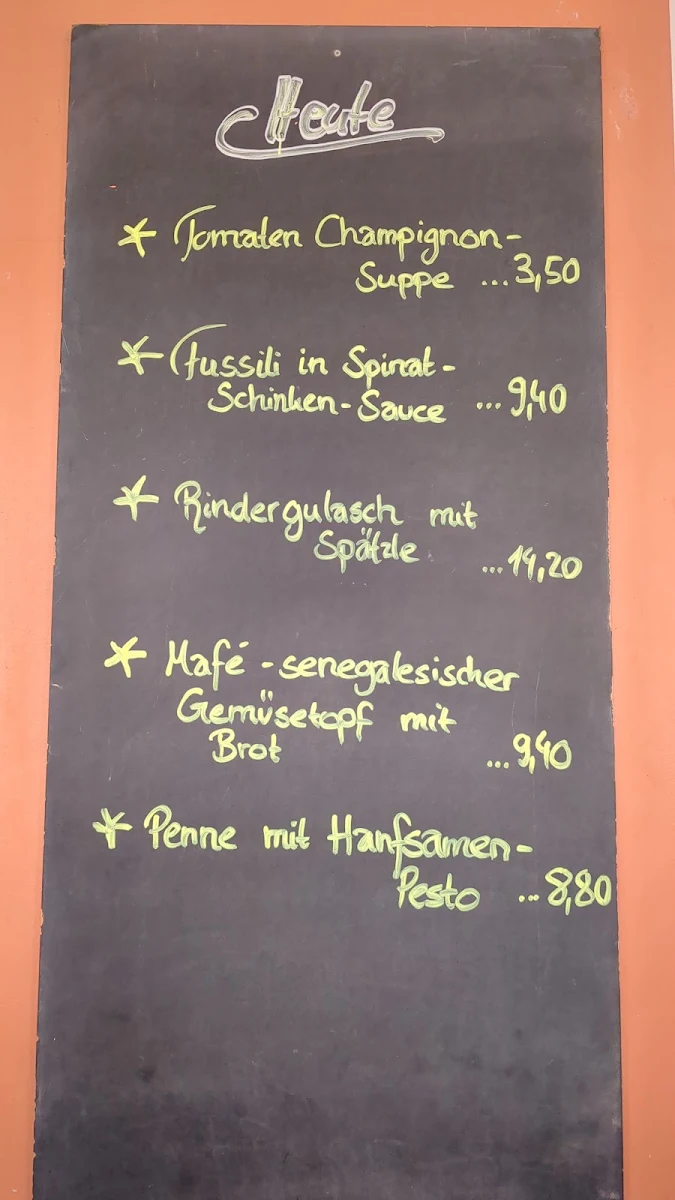 Heute
* Tomaten Champignon-
Suppe ...3,50
* Fussili in Spinat-
Schinken-Sauce ...9,40
* Rindergulasch mit
Spätzle ...14,20
* Mafé - senegalesischer
Gemüsetopf mit
Brot ...9,40
* Penne mit Hanfsamen-
Pesto ...8,80